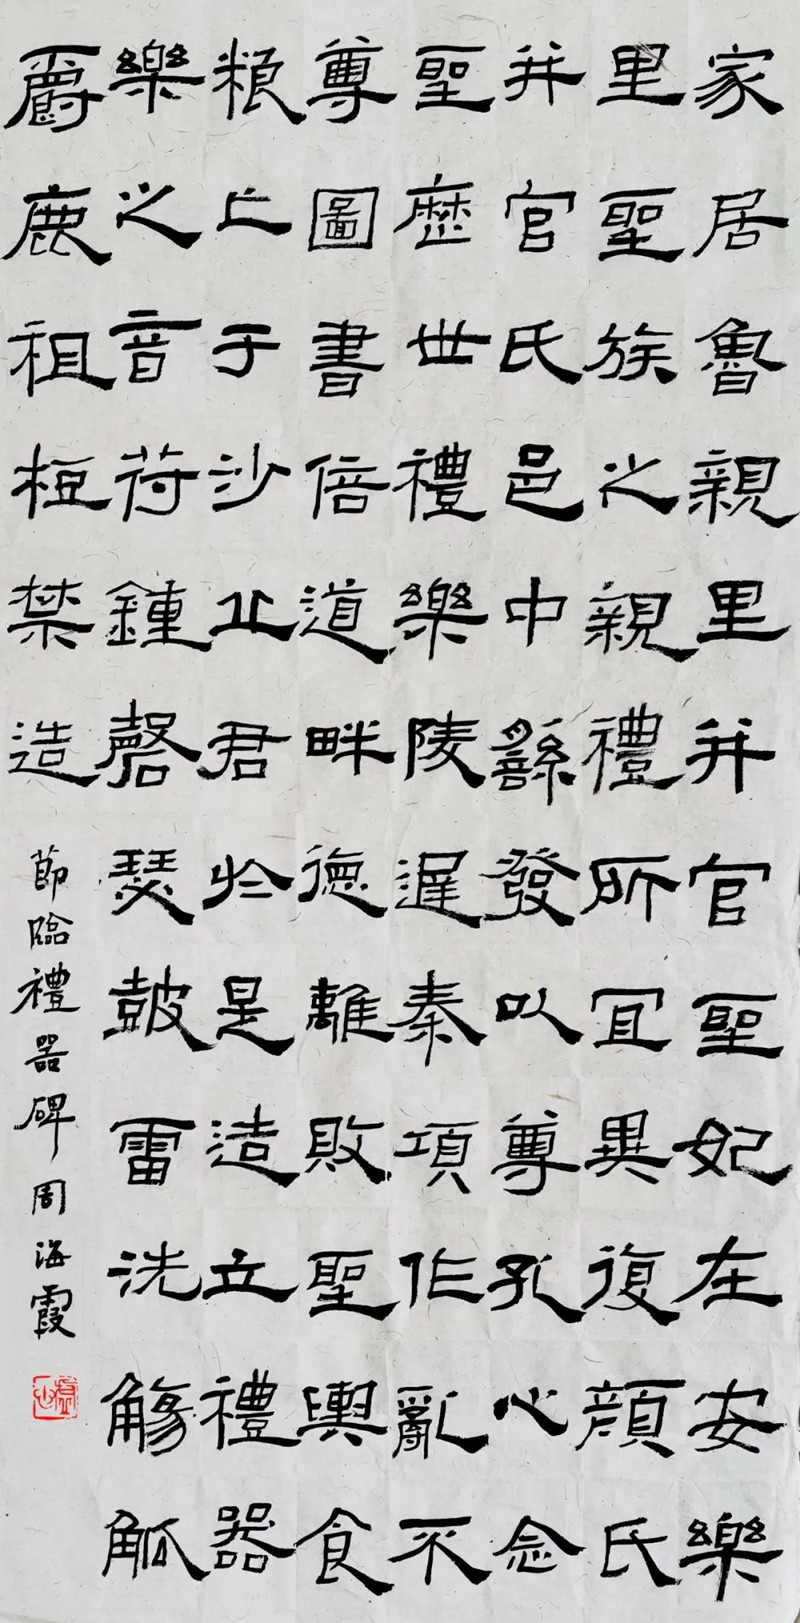 家居魯親里并官聖妃在安樂
里聖族之親禮所宜異復顏氏
并官氏邑中繇發以尊孔心念
聖歷世禮樂陵遲秦項作亂不
尊圖書倍道畔德離敗聖輿食
粮亡于沙丘君於是造立禮器
樂之音苻鍾磬瑟鼓雷洗觴觚
爵鹿祖桓禁造
節臨禮器碑周海霞